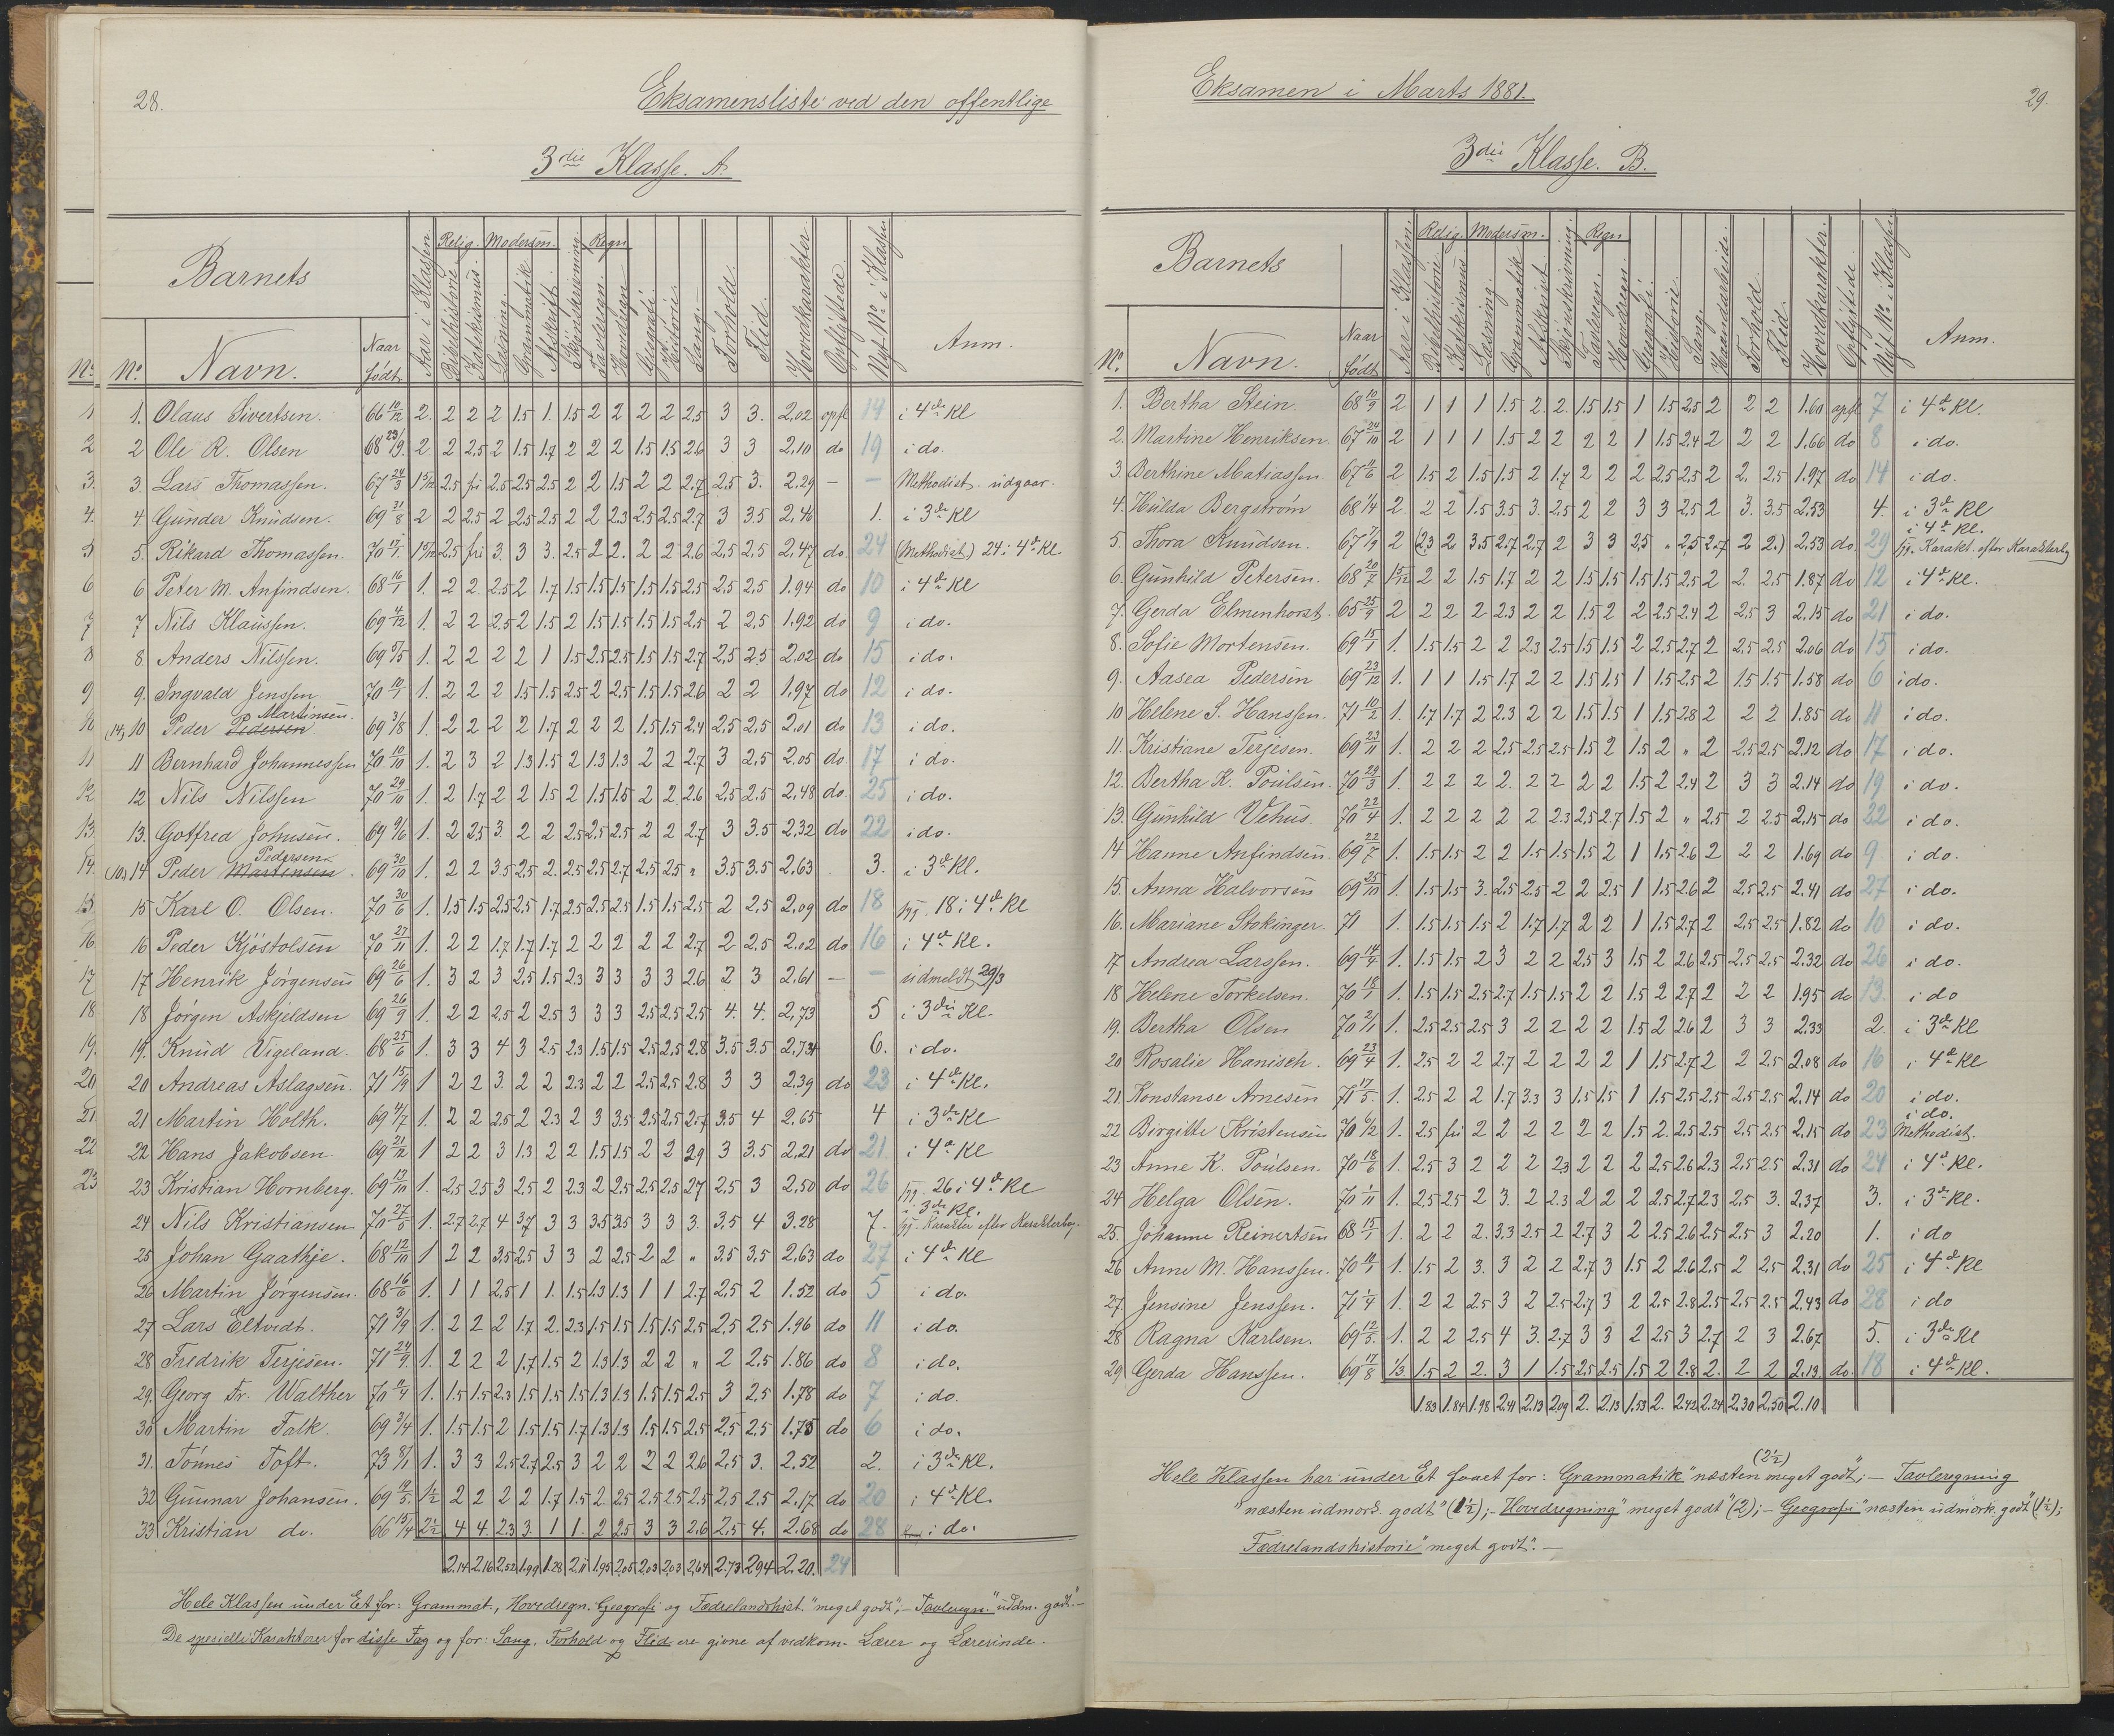 28.
Eksamensliste ved den offentlige
3die Klasse. A.
Barnets
Relig. Modersm. Regn
No. No. Navn. Naar født Aar i Klassen Bibelhistorie Katekismus Læsning Grammatik Afskrift. Skjønskrivning Tavleregn. Hovedregn Geografi. Historie. Sang. Forhold. Flid. Hovedkarakter Opflyttede Nyt No. i Klassen Anm.
1 1. Olaus Sivertsen. 66 10/12 2. 2 2 2 1.5 1. 1.5 2 2 2 2 2,5 3 3. 2,02 opfl 14 i 4de Kl
2 2 Ole R. Olsen 68 23/9 2. 2 2.5 2 1.5 1.7 2 2 2 1.5 1.5 2.6 3 3 2,10 do 19 i do.
3. 3. Lars Thomassen. 67 24/3 1 5/12 2.5 fri 2.5 2.5 2.5 2 2 1.5 2 2 2.7 2.5 3. 2.29 — — Methodist. udgaar.
4. 4. Gunder Knudsen. 69 31/8 2 2 2.5 2 2.5 2.5 2 2 2.3 2.5 2.5 2.7 3 3.5 2,46 1. i 3die Kl
5 5. Rikard Thomassen. 70 17/1. 1 5/12 2.5 fri 3. 3 3. 2.5 2 2. 2 2 2.6 2,5 2,5 2,47 do. 24 (Methodist.) 24 i 4de Kl.
6 6 Peter M. Anfindsen. 68 16/1 1. 2 2. 2.5 2 1.7 1.5 1.5 1.5 1.5 1.5 2.5 2,5 2,5 1.94 do 10 i 4de Kl
7 7 Nils Klaussen. 69 4/12 1. 2 2 2.5 2 1.5 2 1.5 1.5 1.5 1.5 2.5 2 2,5 1.92 do 9 i do.
8 8 Anders Nilssen. 69 5/5 1. 2 2 2 2 1 1.5 2.5 2.5 1.5 1.5 2.7 2,5 2.5 2.02 do 15 i do.
9 9. Ingvald Jenssen 70 10/1 1. 2 2 2 1.5 1.5 2.5 2 2.5 1.5 1.5 2.6 2 2 1.97 do 12 i do.
Martinsen.
10 (14) 10 Peder Pedersen 69 3/8 1. 2 2 2 2 1.7 2 2 2 1.5 1.5 2.4 2,5 2,5 2.01 do 13 i do.
11 11 Bernhard Johannessen 70 10/10 1. 2 3 2 1.3 1.5 2 1.3 1.3 2 2 2.7 3 2,5 2.05 do 17 i do.
12 12 Nils Nilssen 70 29/10 1. 2 1.7 2 2 1.5 2 1.5 1.5 2 2 2.6 2,5 2.5 2,48 do. 25 i do.
13. 13. Gotfred Johnsen. 69 9/6 1. 2 2.5 3. 2 2 2.5 2.5 2.5 2 2 2.7 3 3.5 2,32 do 22 i do.
Pedersen
14. (10) 14 Peder Martensen 69 30/10 1. 2 2 3.5 2.5 2. 2.5 2.5 2.7 2,5 2.5 " 3.5 3.5 2,63 3. i 3d Kl.
15 15 Karl O. Olsen. 70 30/6 1. 1.5 1.5 2.5 2.5 1.7 2.5 2.5 2.5 1.5 1.5 2.5 2 2,5 2,09 do 18 18 i 4de Kl
16 16 Peder Kjöstolsen 70 27/11 1. 2 2 1.7 1.7 1.7 2 2 2 2 2 2.7 2 2.5 2.02 do 16 i 4de Kl.
17 17 Henrik Jørgensen 69 26/6 1. 3 2 3 2.5 1.5 2.3 3 3 3 3 2.6 2 3 2,61 — — udmeldt 29/3
18 18 Jörgen Askjeldsen 69 26/9 1. 2 2 2.5 2 2.5 3 3 3 2.5 2.5 2.5 4. 4. 2,73 5 i 3die Kl.
19. 19. Knud Vigeland. 68 25/6 1. 3 3 4 3 2.5 2.3 1.5 1.5 2.5 2.5 2.8 3.5 3.5 2.74 6. i do.
20 20 Andreas Aslagsen. 71 15/9 1 2 2 3. 2 2 2.3 2 2 2.5 2.5 2.8 3 3 2,39 do 23 i 4de Kl.
21 21 Martin Holth. 69 4/7 1. 2 2 2.5 2 2.3 2 3 3.5 2.5 2.5 2.7 3.5 4 2,65 4 i 3de Kl
22 22 Hans Jakobsen. 69 21/12 1 2 2 3 1.3 2 2 1.5 1.5 2 2 2.9 3 3.5 2,21 do 21. i 4de Kl
23 23 Kristian Hornberg. 69 13/10 1. 2,5 2.5 3 2.5 2 2.3 2 2.5 2.5 2.5 2.7 2.5 3 2,50 do 26 26 i 4de Kl
i 3de Kl.
24 Nils Kristiansen 70 27/5 1. 2.7 2.7 4 3.7 3 3 3.5 3.5 3 3 3. 3.5 4 3.28 7. Karakter efter Karakterbog.
25 Johan Gaathje. 68 12/10 1 2 2 3.5 2.5 3 3 2 2.5 2 2 " 3.5 3.5 2,63 do 27 i 4de Kl
26 Martin Jørgensen. 68 16/6 1. 1 1 2.5 1 1. 1.5 1.3 1.3 1 1 2.7 2,5 2 1.52 do 5 i do.
27 Lars Eltvedt. 71 3/9 1. 2 2 2 1.7 2. 2.3 1.5 1.5 1.5 1.5 2.5 2,5 2.5 1.96 do 11 i do.
28 Fredrik Terjesen. 71 24/9 1. 2 2 2 1.7 1.5 2 1.3 1.3 2 2 " 2 2.5 1.86 do 8 i do.
29. Georg Fr. Walther 70 11/4 1. 1.5 1.5 2.3 1.5 1.5 1.5 1.3 1.3 1.5 1.5 2.5 3 2.5 1.78 do 7 i do.
30 Martin Falk. 69 3/4 1. 1.5 1.5 2 1.5 1.5 1.7 1.3 1.3 1.5 1.5 2.5 2,5 2.5 1.75 do 6 i do.
31. Tönnes Toft. 73 8/1 1. 3 3 2.5 2.7 2.5 3 2 2 2 2 2.6 2,5 3. 2.52 2. i 3de Kl.
32 Gunnar Johansen. 69 19/5. 1/2 2 2 2 2 1.7 1.5 2. 2.5 2.5 2.5 2.5 2,5 2.5 2.17 do 20 i 4de Kl.
33 Kristian do. 66 13/4 2 1/2 4 4. 2.3 3. 1 1. 2 2.5 3 3 2.6 2.5 4. 2.68 do 28 i do.
2.14 2.16 2.52 1.99 1.28 2.11 1.95 2.05 2.03 2.03 2.64 2.73 2.94 2.20. 24
Hele Klassen under Et for: Grammat., Hovedregn. Geografi og Fædrelandshist. "meget godt", — Tavleregn. "udm. godt." —
De specielle Karakterer for disse Fag og for: Sang, Forhold og Flid ere givne af vedkom. Lærer og Lærerinde.
Eksamen i Marts 1881.
29.
3die Klasse. B.
Barnets
Relig. Modersm. Regn
No. Navn. Naar født Aar i Klassen Bibelhistorie Katekismus Læsning. Grammatik Afskrift Skjønskrivning Tavleregn. Hovedregn. Geografi. Historie. Sang. Haandarbeide. Forhold. Flid. Hovedkarakter. Opflyttede. Nyt No. i Klassen Anm.
1. Bertha Stein. 68 10/9 2 1 1 1 1.5 2. 2. 1.5 1.5 1 1.5 2.5 2 2 2 1.60 opfl 7 i 4de Kl.
2. Martine Henriksen. 67 24/10 2 1 1 1 1.5 2 2 2 2 1 1.5 2.4 2 2 2 1.66 do 8 i do.
3. Berthine Matiassen 67 11/6 2 1.5 2 1.5 1.5 2 1.7 2 2 2 2.5 2.5 2 2. 2.5 1.97 do 14 i do.
4. Hulda Bergström 68 1/4 2. 2 2 1.5 3.5 3. 2.5 2 2 3 3 2.5 2 3. 3.5 2,53 4. i 3de Kl
i 4de Kl.
5. Thora Knudsen. 67 7/9 2 (2.3 2 3.5 2.7 2.7 2 3 3 2,5 " 2,5 2.7 2 2.) 2.53 do. 29 Karakt. efter Karakterbg
6. Gunhild Petersen. 68 20/7 15/12 2 2 1.5 1.7 2 2 1.5 1.5 1.5 1.5 2.5 2 2. 2.5 1.87 do 12 i 4de Kl.
7. Gerda Elmenhorst. 65 25/9 2 2 2 2 2.3 2 2 1.5 2 2 2.5 2.4 2 2.5 3 2.15 do 21 i do.
8. Sofie Mortensen. 69 15/1 1. 1.5 1.5 2 2 2.3 2.5 1.5 1.5 2 2.5 2.7 2 2.5 2.5 2.06 do 15 i do.
9. Aasea Pedersen 69 23/12 1. 1 1 1.5 1.7 2 2 1.5 1.5 1 1.5 2.5 2 1.5 1.5 1.58 do 6 i do.
10 Helene S. Hanssen. 71 10/2 1. 1.7 1.7 2 2.3 2 2 1.5 1.5 1 1.5 2.8 2 2 2 1.85 do 11 i do.
11. Kristiane Terjesen. 69 23/11 1. 2 2 2 2.5 2.5 2.5 1.5 2 1.5 2 " 2 2.5 2.5 2.12 do 17 i do.
12. Bertha K. Poulsen. 70 29/3 1. 2 2 2 2. 2 2 2 2 1.5 2 2.4 2 3 3 2.14 do 19 i do.
13. Gunhild Vehus. 70 22/4 1. 2 2 2 2 2 2.3 2.5 2.7 1.5 2 " 2.5 2 2.5 2.15 do 22 i do.
14 Hanne Anfindsen. 69 22/7 1. 1.5 1.5 2 2 1.5 1.5 1.5 2 1 1.5 2.6 2 2 2 1.69 do 9 i do.
15 Anna Halvorsen 69 25/10 1. 1.5 1.5 3. 2.5 2.5 2 2 2.5 1 1.5 2.6 2 2.5 2.5 2.41 do 27 i do.
16. Mariane Stokinger. 71 1. 1.5 1.5 1.5 2 1.7 1.7 2 2 1 1.5 2.7 2 2.5 2.5 1.82 do 10 i do.
17 Andrea Larssen. 69 14/4 1. 1.5 1.5 2 3 2 2 2.5 3 1.5 2 2.6 2.5 2.5 2.5 2.32 do 26 i do.
18 Helene Torkelsen. 70 18/1 1. 1.5 1.5 2.5 2.7 1.5 1.5 2 2 1.5 2 2.7 2 2 2 1.95 do 13. i do
19. Bertha Olsen 70 2/1 1. 2.5 2.5 2.5 3 2 2 2 2 1.5 2 2.6 2 3 3 2.33 2. i 3de Kl
20 Rosalie Hanisch. 69 23/4 1. 2.5 2 2 2.7 2 2 2 2 1 1.5 2.7 2 2 2.5 2.08 do 16 i 4de Kl
21 Konstanse Arnesen 71 17/5. 1. 2.5 2 2 1.7 3.3 3 1.5 1.5 1 1.5 2.5 2.5 2.5 2.5 2.14 do 20 i do.
i do.
22 Birgitte Kristensen 70 6/2 1. 2.5 fri 2 2 2 2 2 2 1.5 2. 2.5 2.5 2.5 2.5 2.15 do 23 Methodist.
23 Anne K. Poulsen. 70 18/6 1. 2.5 3 2 2 2 2.3 2 2 2 2.5 2.6 2.3 2.5 2.5 2.31 do 24 i 4de Kl.
24 Helga Olsen. 70 1/11 1. 2.5 2.5 2 3. 2 2.3 2 2 2 2.5 2.7 2.3 2.5 3. 2.37 3. i 3de Kl.
25. Johanne Reinertsen 68 15/1 1. 2 2 2. 3.3 2.5 2 2.7 3 2 2.5 2.6 2.5 2.5 3 2.20 1. i do
26 Anne M. Hanssen. 70 10/1 1. 1.5 2 3. 3 2 2 2.7 3 1.5 2 2.6 2.5 2 2.5 2.31 do 25 i 4de Kl
27. Jensine Jenssen. 71 1/4 1. 2 2 2.5 3 2 2.5 2.7 3 2 2.5 2.8 2.5 2.5 2.5 2.43 do 28 i do
28 Ragna Karlsen. 69 12/5. 1. 2 2 2.5 4 3. 2.7 3 3 2 2.5 3 2.7 2 3 2.67 5. i 3de Kl
29 Gerda Hanssen. 69 17/8 1/3 1.5 2 2. 3 1 1.5 2.5 2.5 1.5 2 2.8 2. 2 2 2.13. do. 18 i 4de Kl.
1.83 1.84 1.98 2.41 2.13 2.09 2. 2.13 1.53 2. 2.42 2.24 2.30 2.50 2.10
(2½)
Hele Klassen har under Et faaet for: Grammatik "næsten meget godt"; — Tavleregning
"næsten udmærk. godt" (1½); — Hovedregning "meget godt" (2); — Geografi "næsten udmærk. godt" (1½);
Fædrelandshistorie "meget godt". —